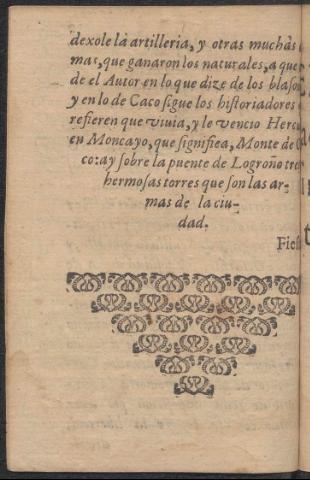 dexole la artilleria, y otras muchas
mas, que ganaron los naturales, a que
de el Autor en lo que dize de los blaso
y en lo de Caco sigue los historiadores
refieren que viuia, y le vencio Hercu
en Moncayo, que significa, Monte de C
co: ay sobre la puente de Logroño tre
hermosas torres que son las ar-
mas de la ciu-
dad.
Fies